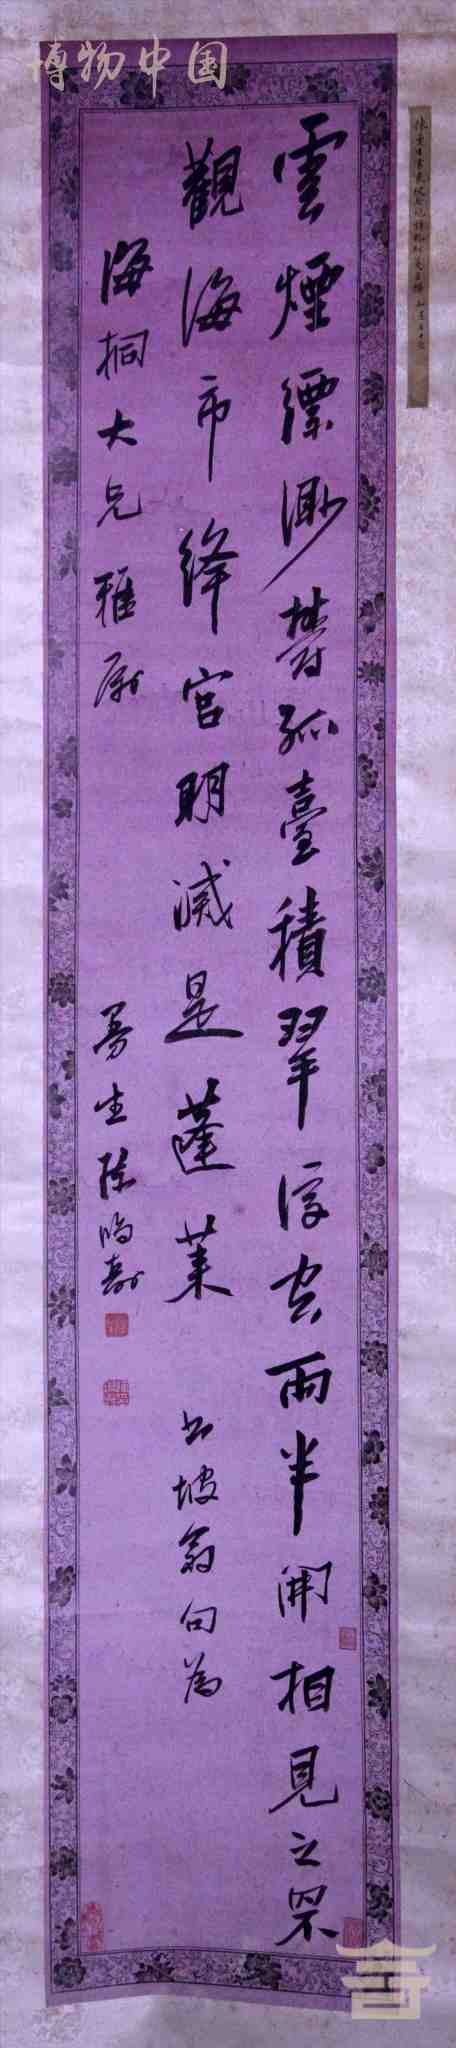 博物中国
雲煙縹渺鬱孤臺積翠浮空雨半開相見之罘
觀海市絳宮明滅是蓬萊 書坡翁句為
海桐大兄雅屬 曼生陳鴻壽